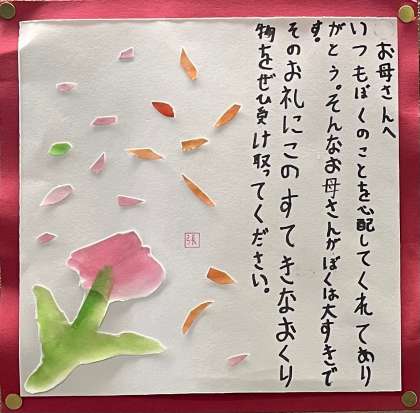 お母さんへ
いつもぼくのことを心配してくれてあり
がとう。そんなお母さんがぼくは大すきで
す。
そのお礼にこのすてきなおくり
物をぜひ受け取ってください。
張